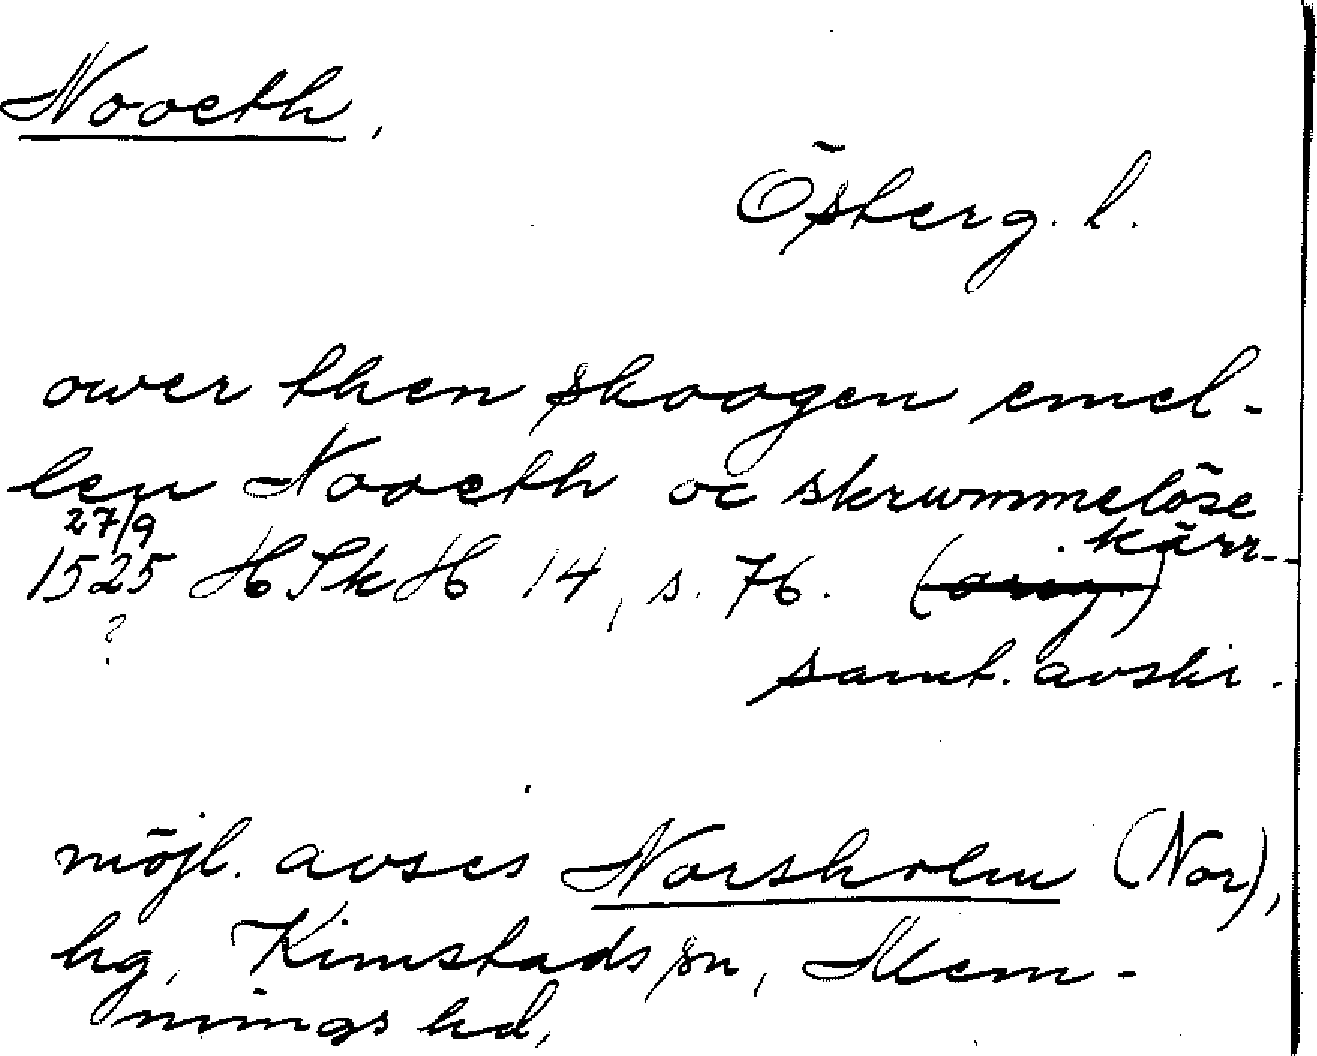 Nooeth,
Österg. l.
ower then skoogen emel-
len Nooeth oc skrummelöse
kärr
27/9
1525 HSkH 14, s. 76. (orig)
?
samt. avskr.
möjl. avses Norsholm (Nor),
hg, Kimstads sn, Mem-
mings hd,